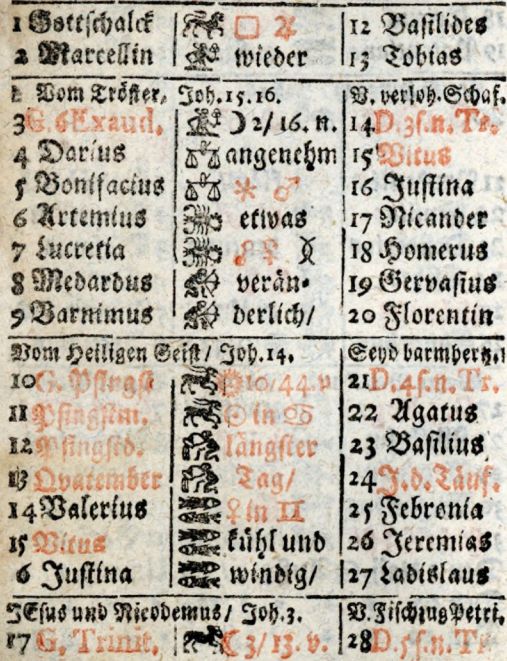 1 Gottschalck ☐ ♃ 12 Basilides
2 Marcellin wieder 13 Tobias
Vom Tröster, Joh. 15. 16. V. verloh. Schaf.
3 G. 6 Exaud. ☽ 2/16. n. 14 D. 3 f. n. Tr.
4 Darius angenehm 15 Vitus
5 Bonifacius ⚹ ♂ 16 Justina
6 Artemius etwas 17 Nicander
7 Lucretia ☍ ♀ 18 Homerus
8 Medardus verän- 19 Gervasius
9 Barnimus derlich/ 20 Florentin
Vom Heiligen Geist/ Joh. 14. Seyd barmhertz.
10 G. Pfingst 10/44. v 21 D. 4 f. n. Tr.
11 Pfingstm. ☉ in ♋ 22 Agatus
12 Pfingstd. längster 23 Basilius
13 Quatember Tag/ 24 J. d. Täuf.
14 Valerius ♀ in ♊ 25 Febronia
15 Vitus kühl und 26 Jeremias
6 Justina windig/ 27 Ladislaus
JEsus und Nicodemus/ Joh. 3. V. Fischzug Petri.
17 G. Trinit. ☾ 3/13. v. 28 D. 5 f. n. Tr